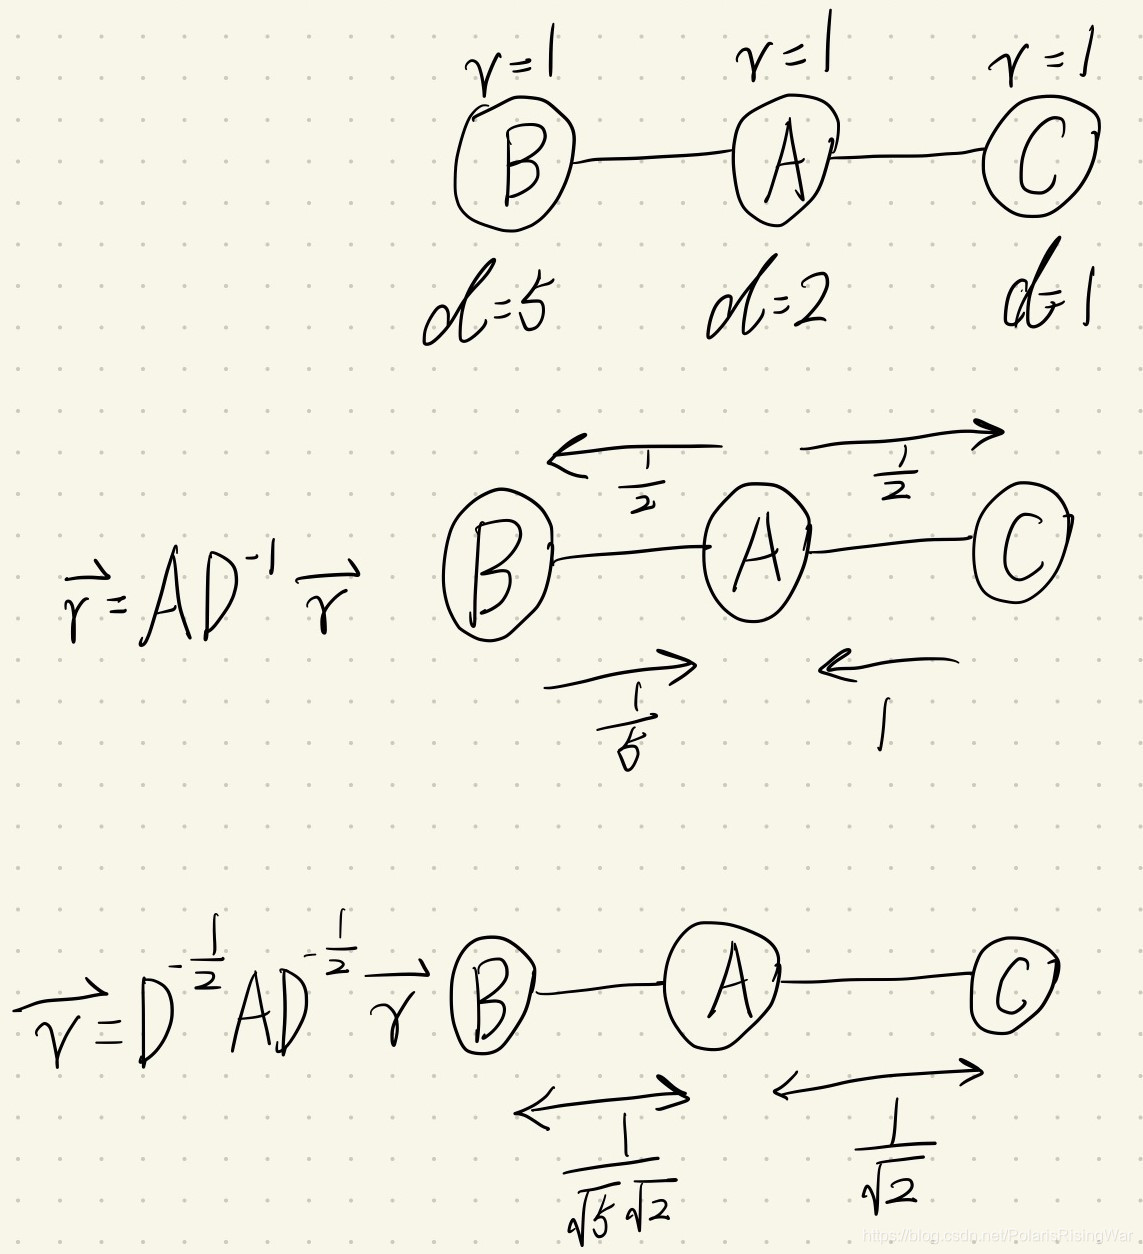 r=1 r=1 r=1
B A C
d=5 d=2 d=1
1/2 1/2
r⃗=AD⁻¹r⃗ B A C
1/5 1
r⃗=D^(-1/2)AD^(-1/2)r⃗ B A C
1/(√5√2) 1/√2
https://blog.csdn.net/PolarisRisingWar